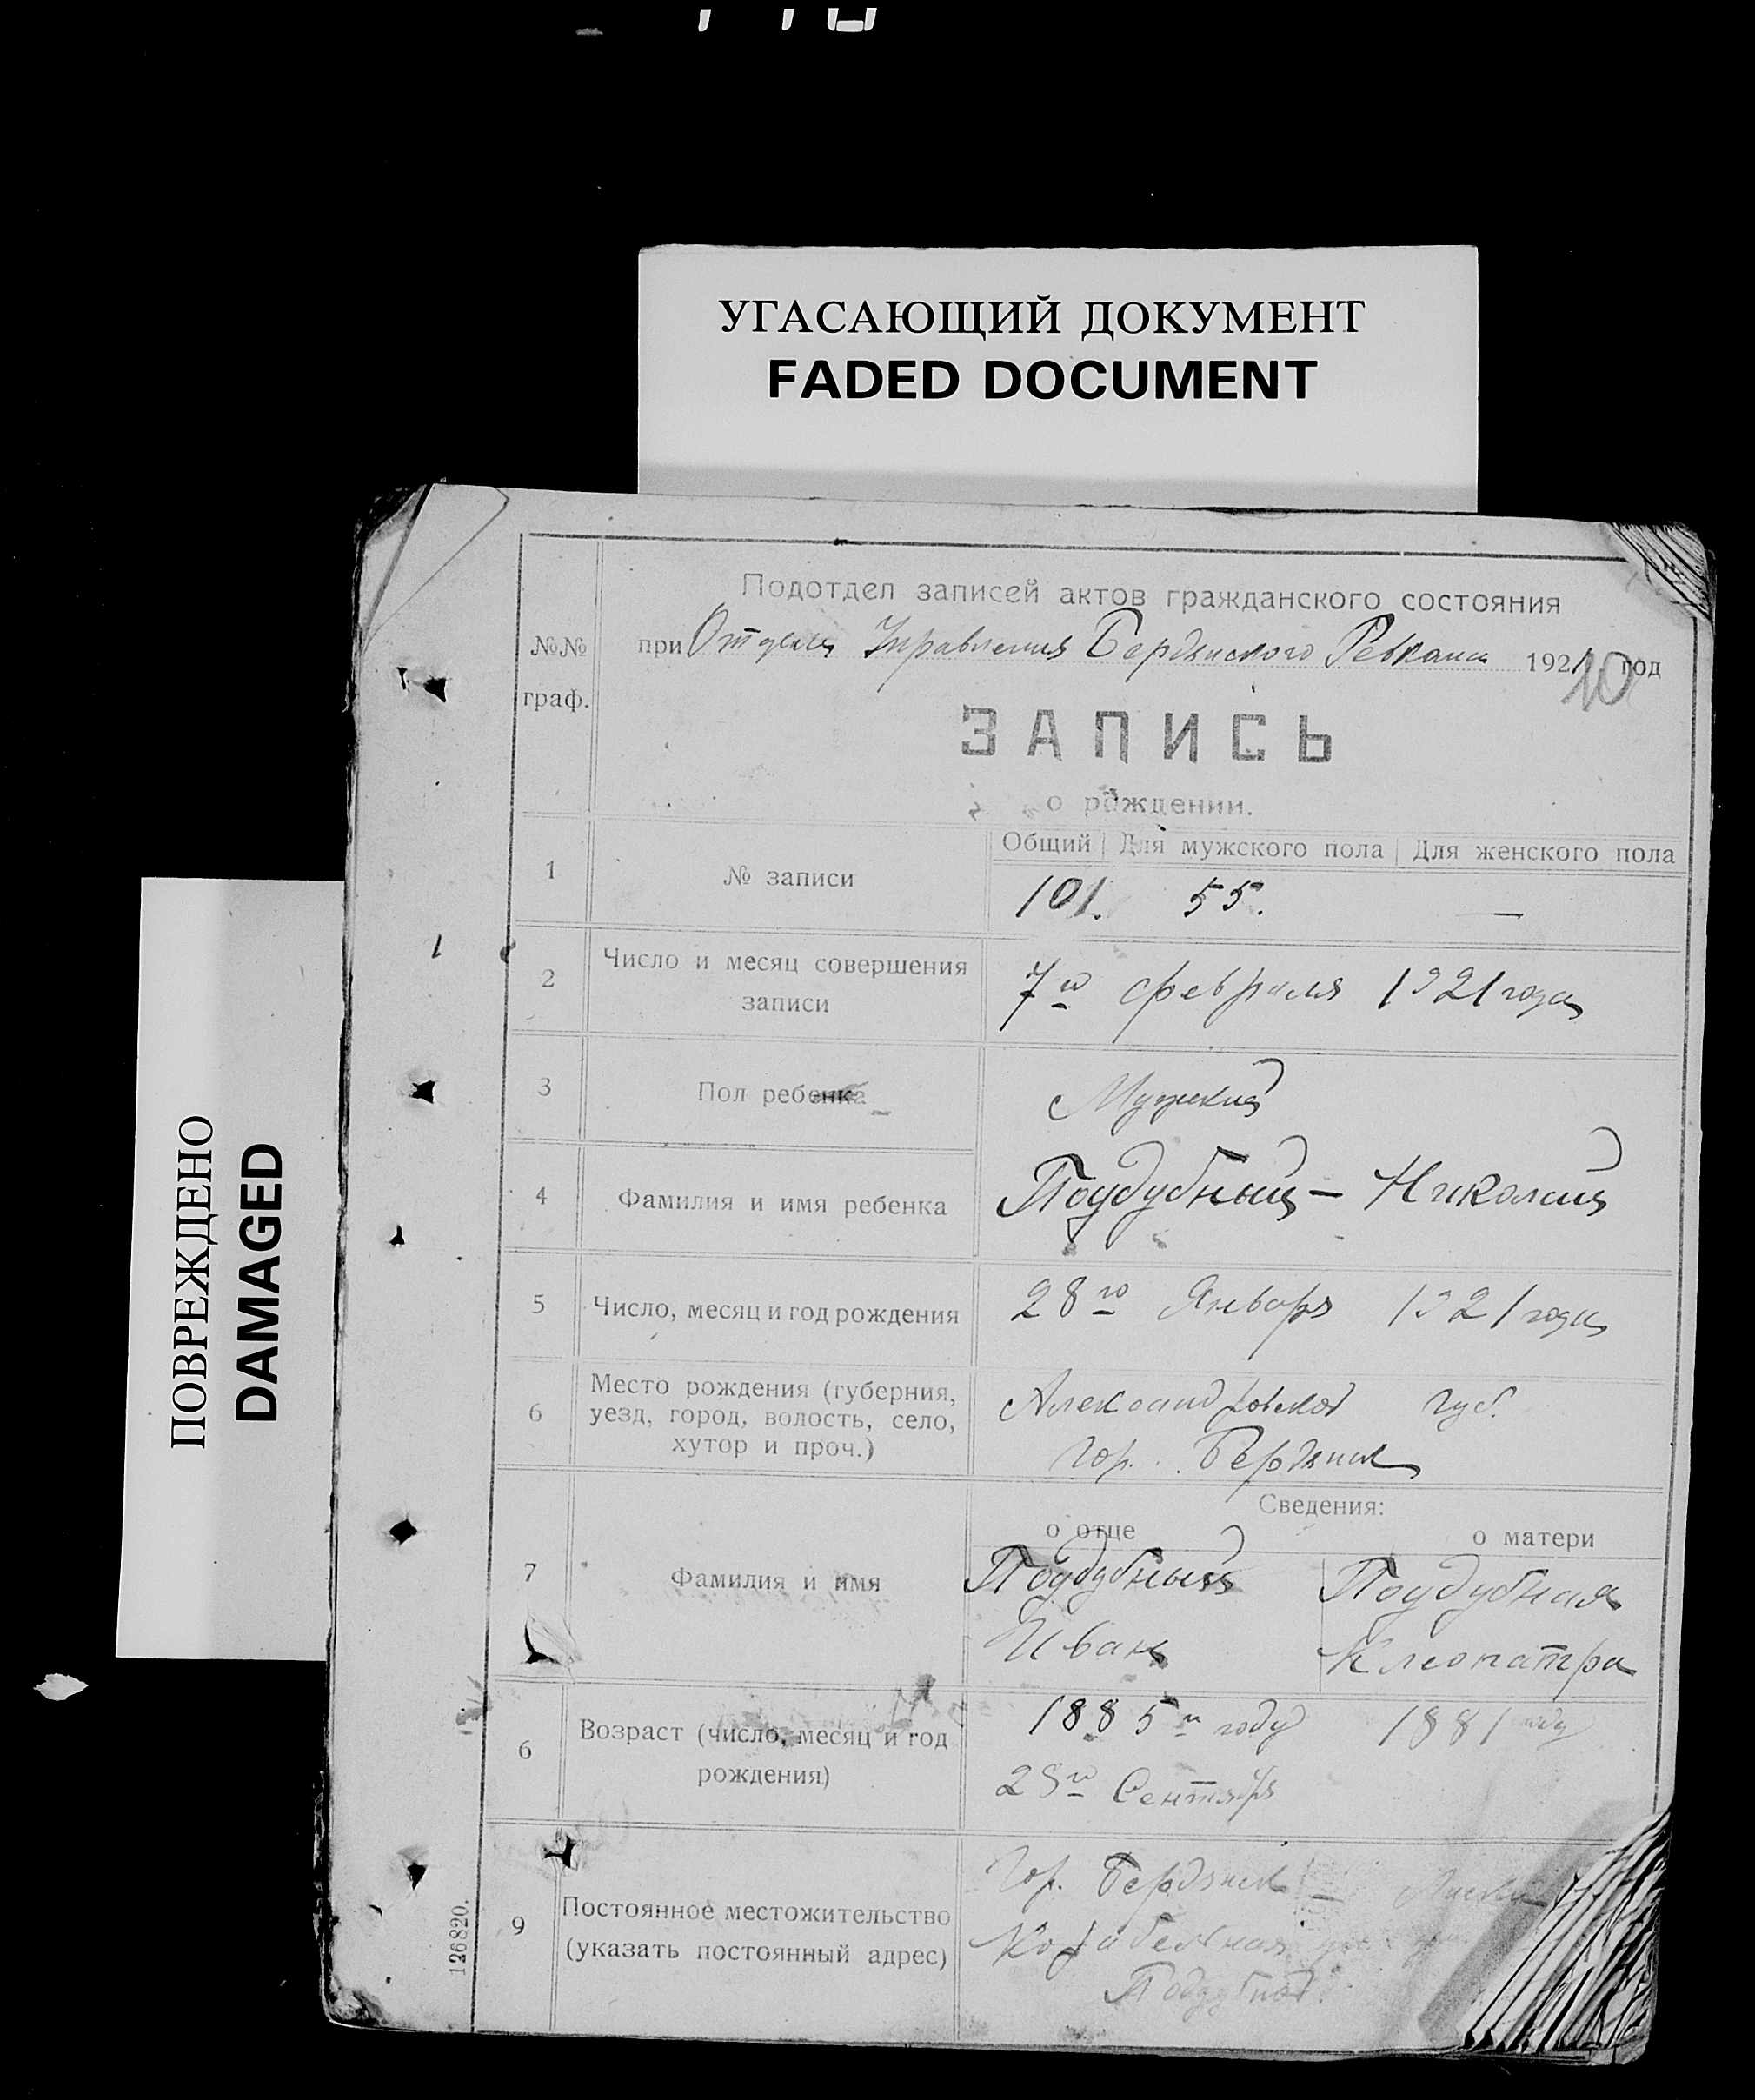 УГАСАЮЩИЙ ДОКУМЕНТ
FADED DOCUMENT
ПОВРЕЖДЕНО
DAMAGED
Подотдел записей актов гражданского состояния
№№ граф.
при Отдела Управления Бердянского Ревкома 1921 год
10
ЗАПИСЬ
о рождении.
Общий Для мужского пола Для женского пола
1 № записи 101. 55. —
2 Число и месяц совершения записи
7го февраля 1921 года
3 Пол ребенка Мужский
4 Фамилия и имя ребенка Поддубный — Николай
5 Число, месяц и год рождения 28го Января 1921 года
6 Место рождения (губерния, уезд, город, волость, село, хутор и проч.)
Александровской губ.
гор. Бердянск
Сведения:
о отце о матери
7 Фамилия и имя
Поддубный Поддубная
Иван Клеопатра
6 Возраст (число, месяц и год рождения)
1885м году 1881 году
Сентября
9 Постоянное местожительство (указать постоянный адрес)
Гор. Бердянск —
Корабельная
Поддубной.
126820.